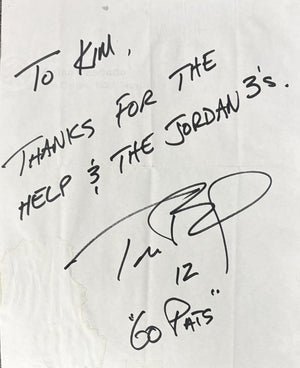 TO KIM,
THANKS FOR THE
HELP & THE JORDAN 3's.
12
"GO PATS"